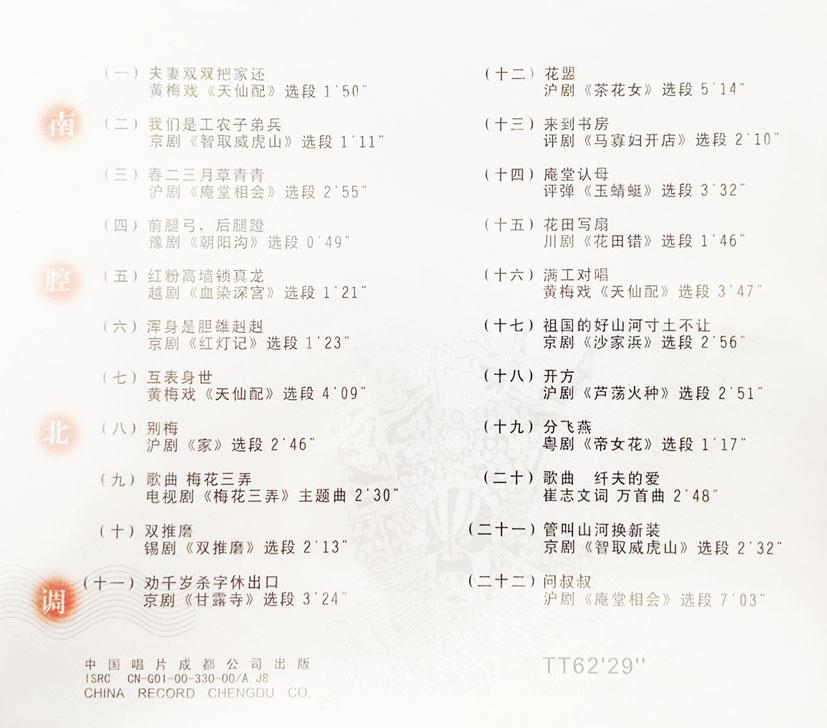 南
腔
北
调
(一) 夫妻双双把家还
黄梅戏《天仙配》选段 1'50"
(二) 我们是工农子弟兵
京剧《智取威虎山》选段 1'11"
(三) 春二三月草青青
沪剧《庵堂相会》选段 2'55"
(四) 前腿弓，后腿蹬
豫剧《朝阳沟》选段 0'49"
(五) 红粉高墙锁真龙
越剧《血染深宫》选段 1'21"
(六) 浑身是胆雄赳赳
京剧《红灯记》选段 1'23"
(七) 互表身世
黄梅戏《天仙配》选段 4'09"
(八) 别梅
沪剧《家》选段 2'46"
(九) 歌曲 梅花三弄
电视剧《梅花三弄》主题曲 2'30"
(十) 双推磨
锡剧《双推磨》选段 2'13"
(十一) 劝千岁杀字休出口
京剧《甘露寺》选段 3'24"
(十二) 花盟
沪剧《茶花女》选段 5'14"
(十三) 来到书房
评剧《马寡妇开店》选段 2'10"
(十四) 庵堂认母
评弹《玉蜻蜓》选段 3'32"
(十五) 花田写扇
川剧《花田错》选段 1'46"
(十六) 满工对唱
黄梅戏《天仙配》选段 3'47"
(十七) 祖国的好山河寸土不让
京剧《沙家浜》选段 2'56"
(十八) 开方
沪剧《芦荡火种》选段 2'51"
(十九) 分飞燕
粤剧《帝女花》选段 1'17"
(二十) 歌曲 纤夫的爱
崔志文词 万首曲 2'48"
(二十一) 管叫山河换新装
京剧《智取威虎山》选段 2'32"
(二十二) 问叔叔
沪剧《庵堂相会》选段 7'03"
中国唱片成都公司出版
ISRC CN-G01-00-330-00/A.J8
CHINA RECORD CHENGDU CO.
TT62'29''